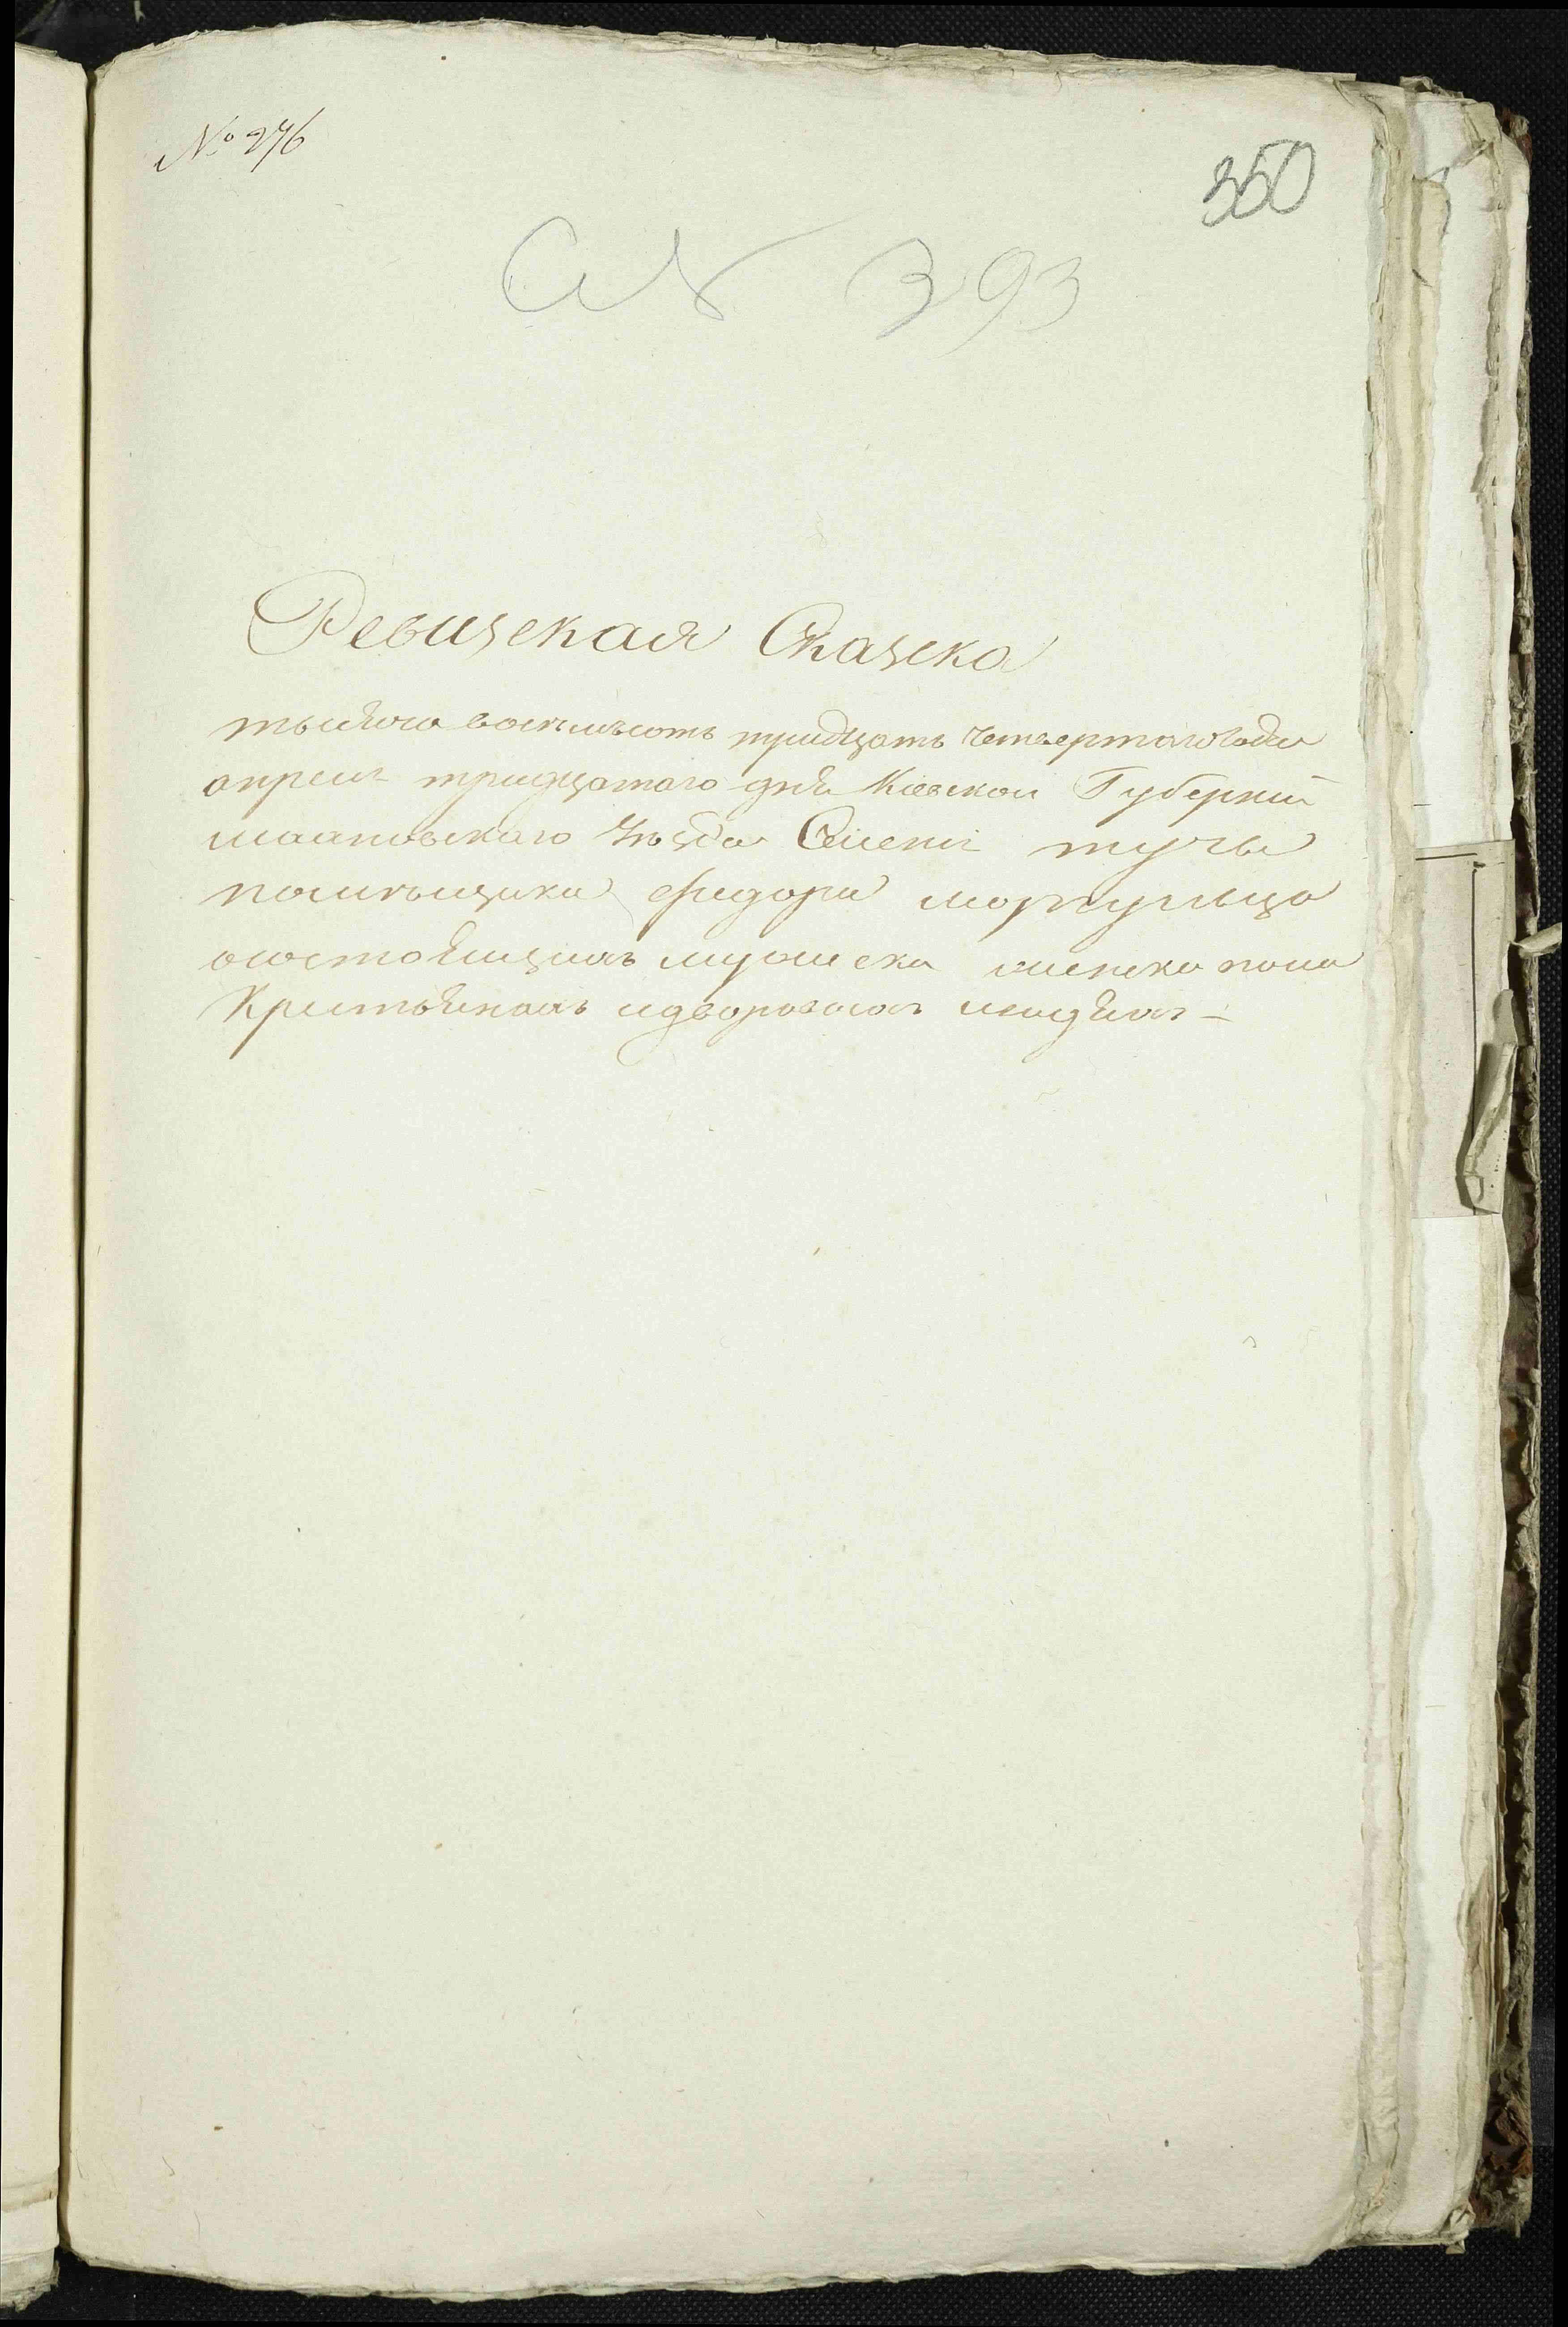 № 276
350
№ 393
Ревизская Сказка
тысяча восемьсотъ тридцать четвертаго года
апреля тридцатаго дня Кіевской Губерніи
Уѣзда Селенія тучи
помѣщика фидора
осостоящихъ мужеска иженска пола
Крестьянахъ идворовыхъ людяхъ